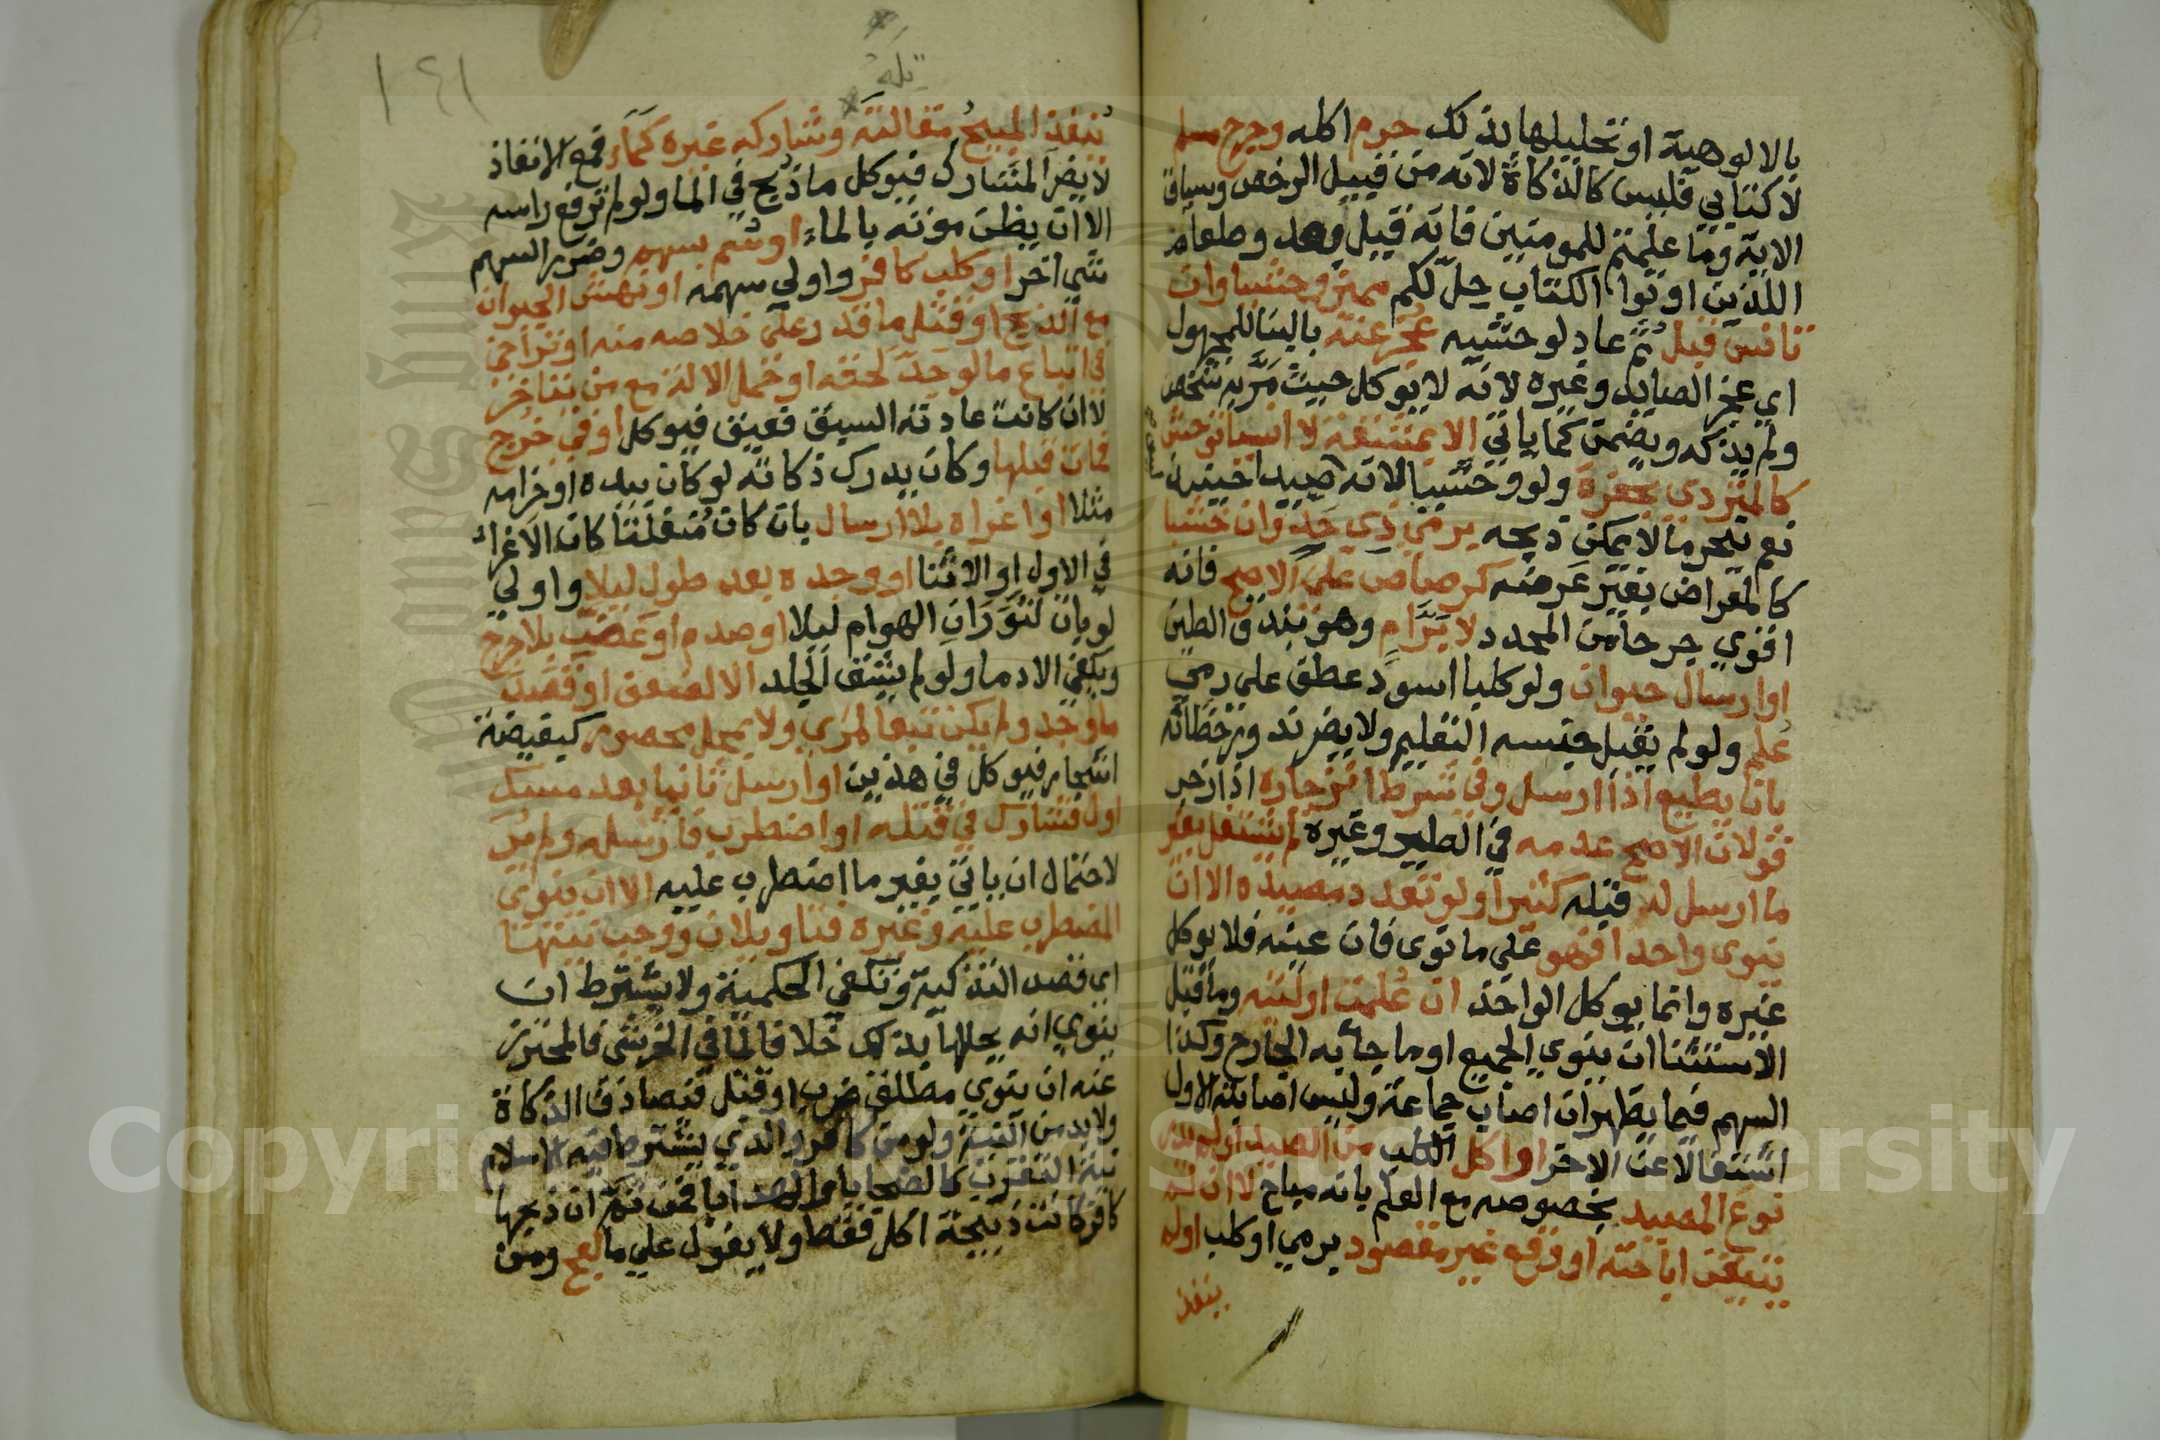 بالالوهية او تحليلها بذلك حرم اكله وجرح مسلم
لا كتابي فليس كالذكاة لانه من قبيل الرخص وسياق
الاية وما علمتم للمومنين فانه قيل وطعام
اللذين اوتوا الكتاب حل لكم مميز وحشيا وان
تانس قبل ثم عاد لوحشيه عجز عنه بالبنا للمجهول
اي عجز الصايد وغيره لانه لا يوكل حيث مر به شخص
ولم يذكه ويضمن كما ياتي الا بمشقة لا انسيا توحش
كالمتردي بحفرة ولو وحشيا لانه صيد احينئذ
نعم نيحر ما لا يمكن ذبحه برمي ذي حد وان خشبا
كالمقراض بغير عرضه كرصاص على الاصح فانه
اقوي جرحا من المحدد لا برام وهو بندق الطين
او ارسال حيوان ولو كلبا اسود عطف علي رمي
علم ولو لم يقبل جنسه التعليم ولا يضر ند ومر خطاته
بان يطيع اذا ارسل وفي شرط انزجاره اذا زجر
قولان الاصح عدمه في الطير وغيره لم يشتغل بغير
ما ارسل له قبله كثيرا ولو تعدد مصيده الا ان
ينوي واحدا فهو علي ما نوى فان عينه فلا يوكل
غيره وانما يوكل الواحد ان علمت اوليته وما قبل
الاستثنا ان ينوي الجميع او ما جا به الجارح وكذا
السهم فيما يظهر ان اصاب جماعة وليس اصابته الاول
اشتغالا عن الاخر او اكل الكلب من الصيد او لم
نوع المصيد بخصوصه مع العلم بانه مباح لا ان لم
يتيقن اباحته او ذبحه غير مقصود برمي او كلب او لم
ينفذ
١٤١
تلة
ينفذ المبيح مقاتله وشاركه غيره كماء فمع الانفاذ
لا يضر المشارك فيوكل ما ذبح في الما ولو لم ترفع راسه
الا ان يظن موته بالماء او سم بسهم وضرب السهم
شي اخر او كلب كافر واولي سهمه او نهش الحيوان
مع الذبح او قتل ما قدر على خلاصه منه او تراخي
في اتباع ما لو جد لحقه او حمل الالة مع من يتاخر
لا ان كانت عادته السبق فعيق فيوكل او في خرج
فمات قبلها وكان يدرك ذكاته لو كان بيده او حزامه
مثلا او اغراه بلا ارسال بان كان منفلتا كان الاغرا
في الاول او الاثنا او وجده بعد طول ليلا واولي
لو بات لثوران الهوام ليلا او صدم او عض بلا جرح
ويكفي الادما ولو لم يشق الجلد الا لضعف او قصد
ما وجد ولم يكن تبعا لمري ولا بمحل محصور كغيضة
اشجار فيوكل في هذين او ارسل ثانيا بعد مسك
اول فتشارك في قتله او اضطرب فارسله ولم ير
لاحتمال ان ياتي بغير ما اضطرب عليه الا ان ينوي
المضطرب عليه وغيره فتاويلان ووجب نيتها
اي قصد التذكية وتكفي الحكمية ولا يشترط ان
ينوي انه يحللها بذلك خلافا لما في الخرشي فالمحترز
عنه ان ينوي مطلق ضرب او قتل فتصادف الذكاة
ولا بد من النية ولو من كافر والذي يشترط فيه الاسلام
نية التقرب كالضحايا والهدايا فمن ثم ان ذبحها
كافر كانت ذبيحة اكل فقط ولا يعول علي ما لعج ومن